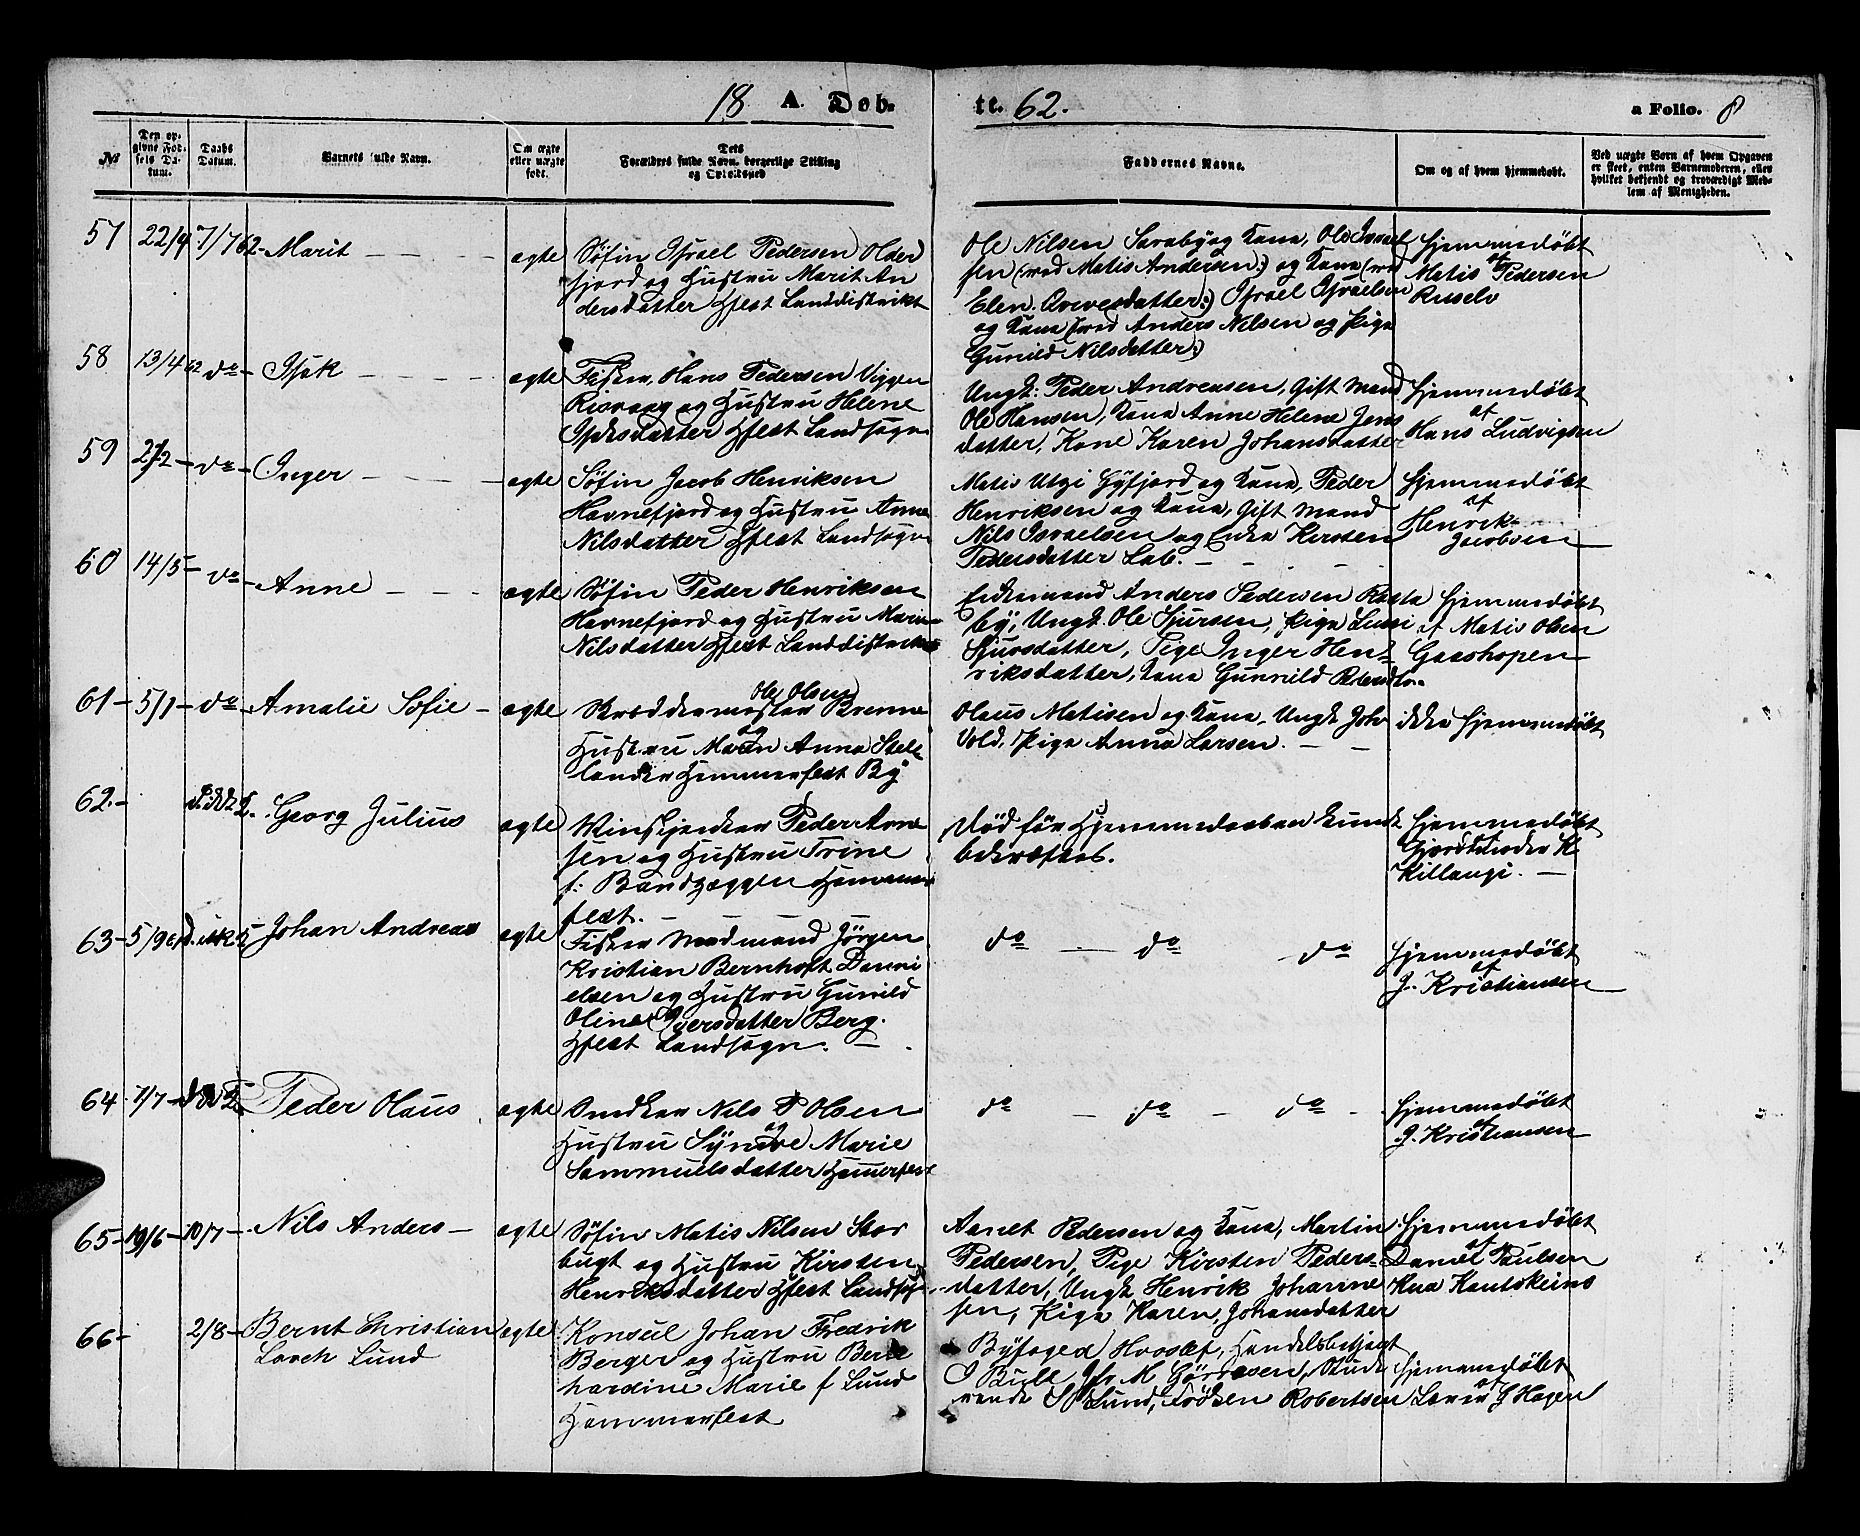 18 A. Døb-
te. 62.
a Folio. 8
№
Den op-
givne Fød-
sels Da-
tum.
Daabs
Datum.
Barnets fulde Navn.
Om ægte
eller uægte
født.
Dets
Forældres fulde Navn, borgerlige Stilling
og Opholdssted
Faddernes Navne.
Om og af hvem hjemmedøbt.
Ved uægte Børn af hvem Opgaven
er skeet, enten Barnemoderen, eller
hvilket bekjendt og troværdigt Med-
lem af Menigheden.
57 22/4 7/7 62 Marit
ægte
Søfin Israel Pedersen Older
fjord og Hustru Marit An
dersdatter Hfest Landdistrikt
Ole Nilsen Saraby og Kone, Ole Israel
sen (ved Matis Andersen) og Kone (ved
Elen datter) Israel Israelsen
og Kone (ved Anders Nilsen og Pige
Gunild Nilsdatter)
Hjemmedøbt
af
Matis Pedersen
Russelv
58 13/4 62 do Isak
ægte
Fisker Hans Pedersen Viggen
Risvaag og Hustru Helene
Isaksdatter Hfest Landsogn
Ungk: Peder Andreasen, Gift Mand
Ole Hansen, Kone Anne Helene Jens
datter, Kone Karen Johansdatter
Hjemmedøbt
af
Hans Ludvigsen
59 2/2 do Inger
ægte
Søfin Jacob Henriksen
Havnefjord og Hustru Anne
Nilsdatter Hfest Landsogn
Matis Utzi Gÿfjord og Kone, Peder
Henriksen og Kone, Gift Mand
Nils Israelsen og Enke Kirsten
Pedersdatter Lab.
Hjemmedøbt
af
Henrik
Jacobsen
60 14/5 do Anne
ægte
Søfin Peder Henriksen
Havnefjord og Hustru Marie
Nilsdatter Hfest Landdistrikt
Enkemand Anders Pedersen Rasta
by, Ungk. Ole Sjursen, Pige Lussi
Sjursdatter, Pige Inger Hen-
riksdatter, Kone Gunnild
Hjemmedøbt
af Matis Olsen
Gaashopen
61 5/1 do Amalie Sofie
ægte
Ole Olsen
Skræddermester Brenne
og
Hustru Maren Anna Stel
lander Hammerfest By
Olaus Matisen og Kone, Ungk Joh
Vold, Pige Anna Larsen.
ikke Hjemmedøbt
62. Georg Julius
ægte
Vinskjenker Peder Arne
sen og Hustru Trine
f: Bandzeggen Hammer
fest.
Død før Hjemmedaaben kunde
bekræftes.
Hjemmedøbt
K
Killengi.
63 5/9 Johan Andreas
ægte
Fisker Nordmand Jörgen
Kristian Bernhoft Dani
elsen og Hustru Gunild
Oline Iversdatter Berg.
Hfest Landsogn.
do do do
Hjemmedøbt
af
J. Kristiansen
64 7/7 Peder Olaus
ægte
Snedker Nils P Olsen
og
Hustru Sÿnøve Marie
Sammuelsdatter Hamerfest
do do do
Hjemmedøbt
af
J. Kristiansen
65 19/6 10/7 Nils Anders
ægte
Søfin Matis Nilsen Stor
bugt og Hustru Kirsten
Henriksdatter Hfest Landsogn
Aanet Pedersen og Kone, Martin
Pedersen, Pige Kirsten Peders-
datter, Ungk Henrik Johanne
sen, Pige Karen Johansdatter
Hjemmedøbt
af
Daniel Paulsen
Kua Kautokeino
66 2/8 Bernt Christian
Lorch Lund
ægte
Konsul Johan Fredrik
Berger og Hustru Bern
hardine Marie f Lund
Hammerfest
Byfoged Hvoslef, Handelsbetjent
Bull M Görrisen, Stude
rende Lund, Frøken Robertsen
Hjemmedøbt
af
Hagen